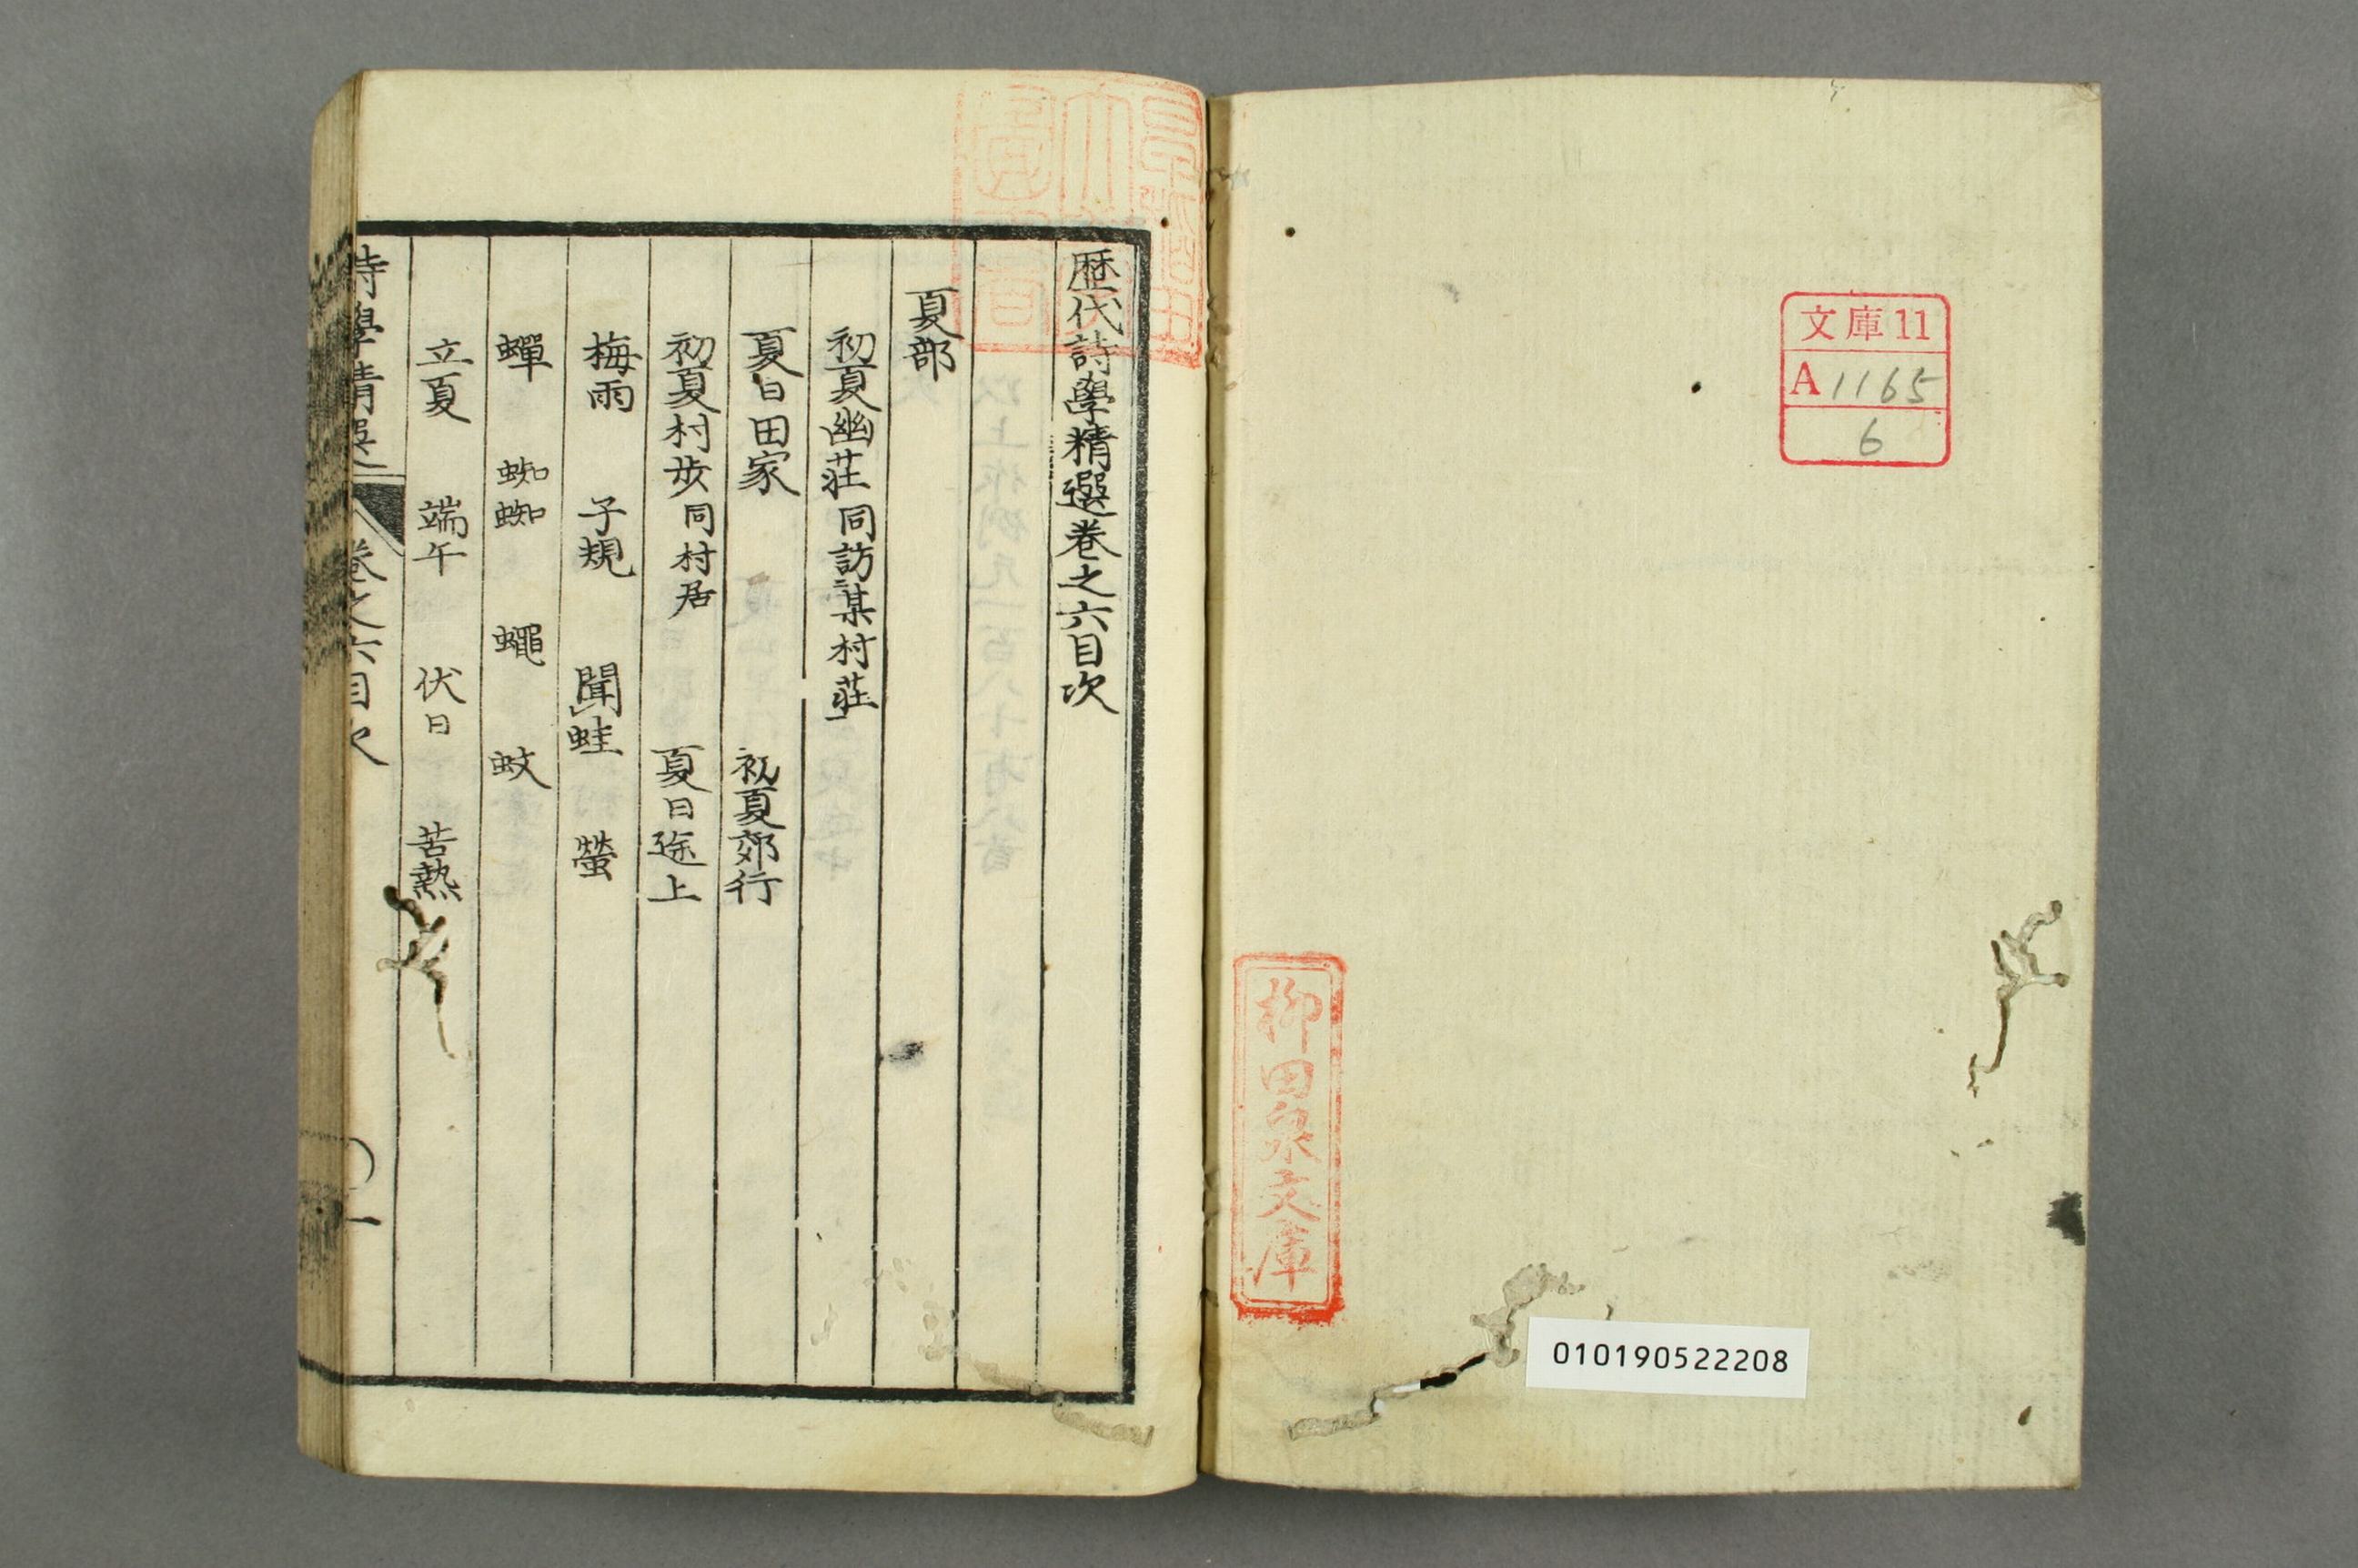 文庫11
A1165
6
柳田泉文庫
010190522208
歷代詩學精選卷之六目次
夏部
初夏幽莊 同訪某村莊
夏日田家 初夏郊行
初夏村步 同村居 夏日途上
梅雨 子規 聞蛙 螢
蟬 蜘蛛 蠅 蚊
立夏 端午 伏日 苦熱
詩學精選 卷之六目次 一